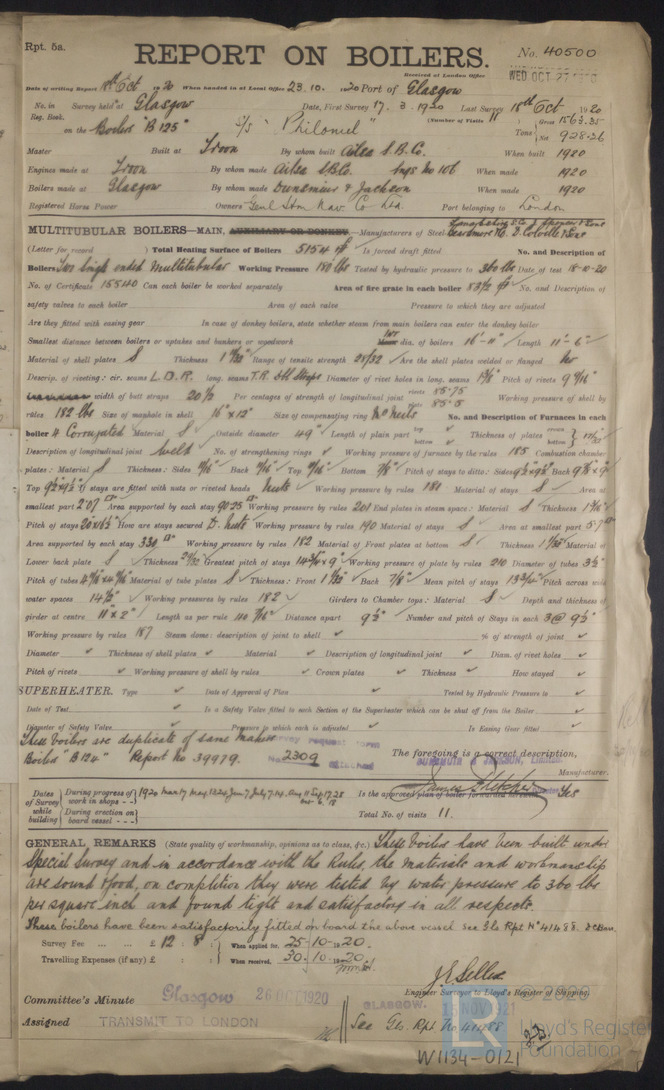 Rpt. 5a.
REPORT ON BOILERS.
No. 40500
Received at London Office
WED. OCT. 27 1920
Date of writing Report 18th Oct 1920 When handed in at Local Office 23.10.1920 Port of Glasgow
No. in Reg. Book. Survey held at Glasgow Date, First Survey 17.3.1920 Last Survey 18th Oct 1920
on the Boilers "B 125" S/S "Philomel" (Number of Visits 11) Tons Gross 1563.35 Net 928.26
Master Built at Troon By whom built Ailsa S.B.Co. When built 1920
Engines made at Troon By whom made Ailsa S.B.Co. Engs No 106 When made 1920
Boilers made at Glasgow By whom made Dunsmuir & Jackson When made 1920
Registered Horse Power Owners Genl Stm Nav. Co Ltd. Port belonging to London
MULTITUBULAR BOILERS—MAIN, AUXILIARY OR DONKEY.—Manufacturers of Steel D. Colville & Sons
(Letter for record ) Total Heating Surface of Boilers 5154 Is forced draft fitted No. and Description of
Boilers Two single ended Multitubular Working Pressure 180 lbs Tested by hydraulic pressure to 360 lbs Date of test 18-10-20
No. of Certificate 15540 Can each boiler be worked separately Area of fire grate in each boiler No. and Description of
safety valves to each boiler Area of each valve Pressure to which they are adjusted
Are they fitted with easing gear In case of donkey boilers, state whether steam from main boilers can enter the donkey boiler
Smallest distance between boilers or uptakes and bunkers or woodwork dia. of boilers Length 11'-6"
Material of shell plates S Thickness Range of tensile strength 28/32 Are the shell plates welded or flanged no
Descrip. of riveting: cir. seams L.D.R. long. seams T.R. Dbl Straps Diameter of rivet holes in long. seams Pitch of rivets 9 9/16"
width of butt straps 20 1/2 Per centages of strength of longitudinal joint rivets 85.75 plate 85.5 Working pressure of shell by
rules 182 lbs Size of manhole in shell 16" x 12" Size of compensating ring McNeils No. and Description of Furnaces in each
boiler 4 Corrugated Material S Outside diameter 49" Length of plain part top bottom Thickness of plates crown bottom
Description of longitudinal joint weld No. of strengthening rings Working pressure of furnace by the rules 185 Combustion chamber
plates: Material S Thickness: Sides Back Top Bottom Pitch of stays to ditto: Sides 9 1/2 x 9 1/2 Back
Top 9 1/2 x 9 1/2 If stays are fitted with nuts or riveted heads Nuts Working pressure by rules 181 Material of stays S Area at
smallest part 2.07 Area supported by each stay 90.25 Working pressure by rules 201 End plates in steam space: Material S Thickness
Pitch of stays How are stays secured D. Nuts Working pressure by rules 190 Material of stays S Area at smallest part
Area supported by each stay 330 Working pressure by rules 182 Material of Front plates at bottom S Thickness Material of
Lower back plate S Thickness Greatest pitch of stays Working pressure of plate by rules 210 Diameter of tubes 3 1/2"
Pitch of tubes Material of tube plates S Thickness: Front Back 7/8" Mean pitch of stays Pitch across wide
water spaces 14 1/2" Working pressures by rules 182 Girders to Chamber tops: Material S Depth and thickness of
girder at centre 11" x 2" Length as per rule Distance apart 9 1/2" Number and pitch of Stays in each 3 @ 9 1/2"
Working pressure by rules 187 Steam dome: description of joint to shell % of strength of joint
Diameter Thickness of shell plates Material Description of longitudinal joint Diam. of rivet holes
Pitch of rivets Working pressure of shell by rules Crown plates Thickness How stayed
SUPERHEATER. Type Date of Approval of Plan Tested by Hydraulic Pressure to
Date of Test Is a Safety Valve fitted to each Section of the Superheater which can be shut off from the Boiler
Diameter of Safety Valve Pressure to which each is adjusted Is Easing Gear fitted
These boilers are duplicate of same makers
Boilers "B 124" Report No 39979.
Survey request form
No. 2309 attached
The foregoing is a correct description,
DUNSMUIR & JACKSON, Limited.
Manufacturer.
Dates of Survey while building
During progress of work in shops - -
During erection on board vessel - - -
Is the approved plan of boiler forwarded herewith Yes
Total No. of visits 11.
GENERAL REMARKS (State quality of workmanship, opinions as to class, &c.) These boilers have been built under
Special Survey and in accordance with the Rules, the materials and workmanship
are sound & good, on completion they were tested by water pressure to 360 lbs
per square inch and found tight and satisfactory in all respects.
These boilers have been satisfactorily fitted on board the above vessel see Gls Rpt No 41488.
Survey Fee ... ... £ 12 : 8 : When applied for, 25-10-1920.
Travelling Expenses (if any) £ : : When received, 30.10.1920
Engineer Surveyor to Lloyd's Register of Shipping.
Committee's Minute Glasgow 26 OCT 1920
GLASGOW. 15 NOV 1921
Assigned TRANSMIT TO LONDON
See Gls. Rpt. No 41488
© 2020
Lloyd's Register
Foundation
W1134-0121